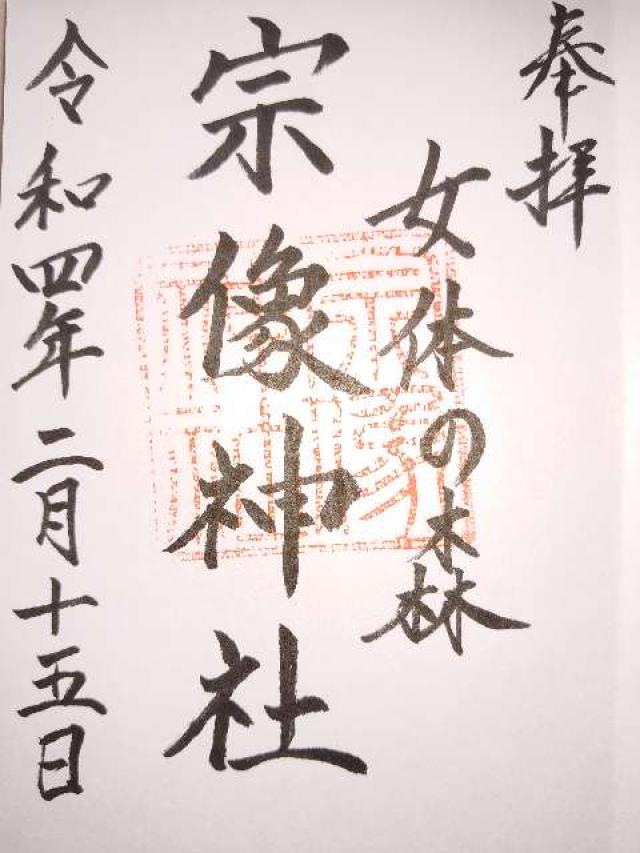 奉拝
女体の森
宗像神社
令和四年二月十五日